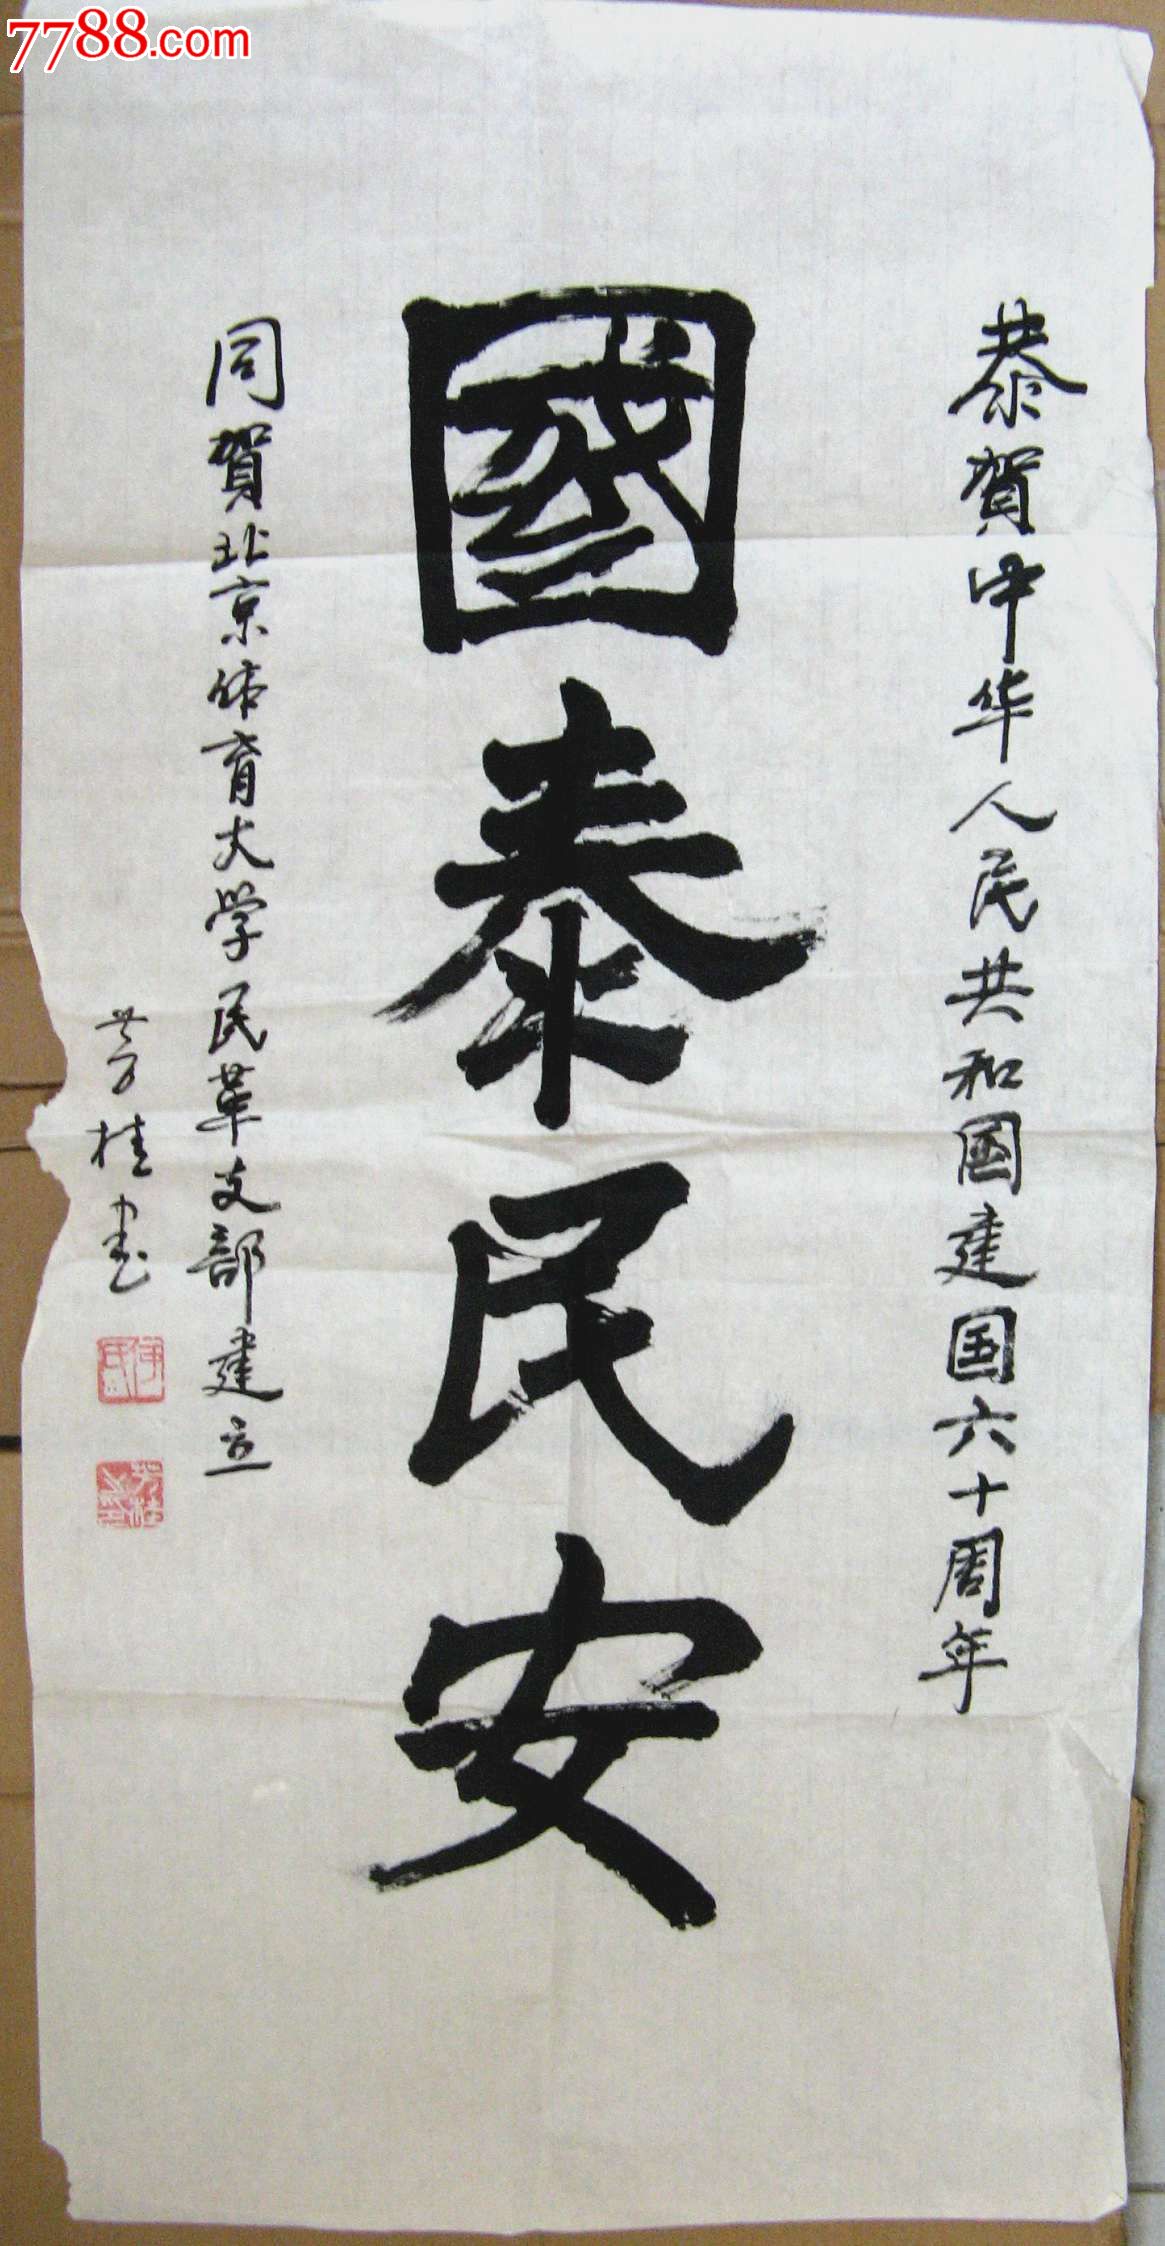 7788.com
恭贺中华人民共和国建国六十周年
國泰民安
同贺北京体育大学民革支部建立
芳桂书